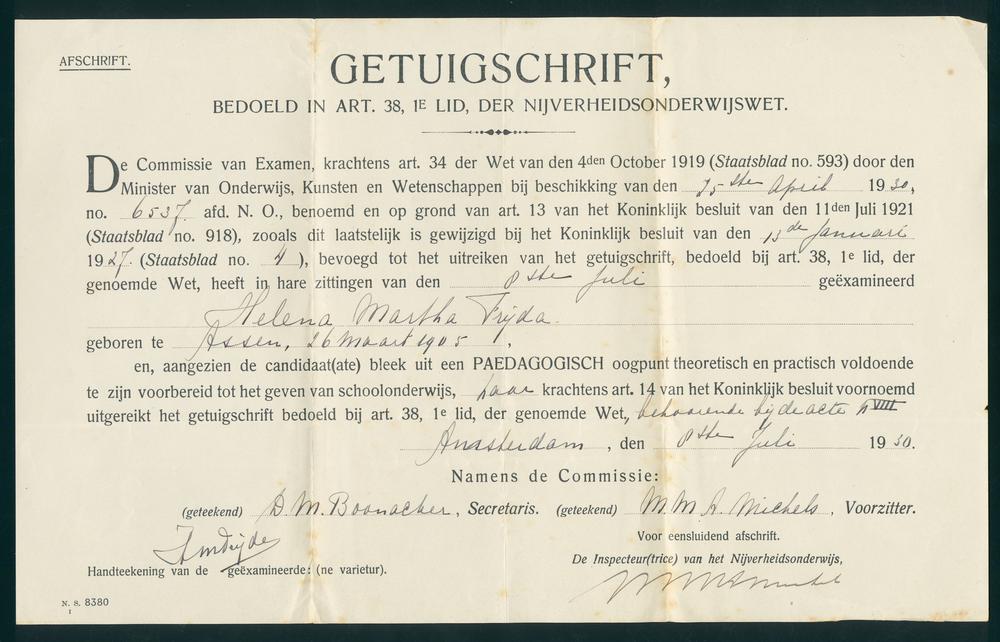 AFSCHRIFT.
GETUIGSCHRIFT,
BEDOELD IN ART. 38, 1E LID, DER NIJVERHEIDSONDERWIJSWET.
De Commissie van Examen, krachtens art. 34 der Wet van den 4den October 1919 (Staatsblad no. 593) door den
Minister van Onderwijs, Kunsten en Wetenschappen bij beschikking van den 15ste April 1930,
no. 6537 afd. N. O., benoemd en op grond van art. 13 van het Koninklijk besluit van den 11den Juli 1921
(Staatsblad no. 918), zooals dit laatstelijk is gewijzigd bij het Koninklijk besluit van den 13de Januari
1927. (Staatsblad no. 4), bevoegd tot het uitreiken van het getuigschrift, bedoeld bij art. 38, 1e lid, der
genoemde Wet, heeft in hare zittingen van den 8ste Juli geëxamineerd
Helena Martha Frijda.
geboren te Assen, 26 Maart 1905,
en, aangezien de candidaat(ate) bleek uit een PAEDAGOGISCH oogpunt theoretisch en practisch voldoende
te zijn voorbereid tot het geven van schoolonderwijs, haar krachtens art. 14 van het Koninklijk besluit voornoemd
uitgereikt het getuigschrift bedoeld bij art. 38, 1e lid, der genoemde Wet, behoorende bij de acte N VIII
Amsterdam, den 8ste Juli 1930.
Namens de Commissie:
(geteekend) D. M. Boonacker, Secretaris. (geteekend) M. M. A. Michels, Voorzitter.
Voor eensluidend afschrift.
De Inspecteur(trice) van het Nijverheidsonderwijs,
HMFrijda
Handteekening van de geëxamineerde: (ne varietur).
N. S. 8380
I